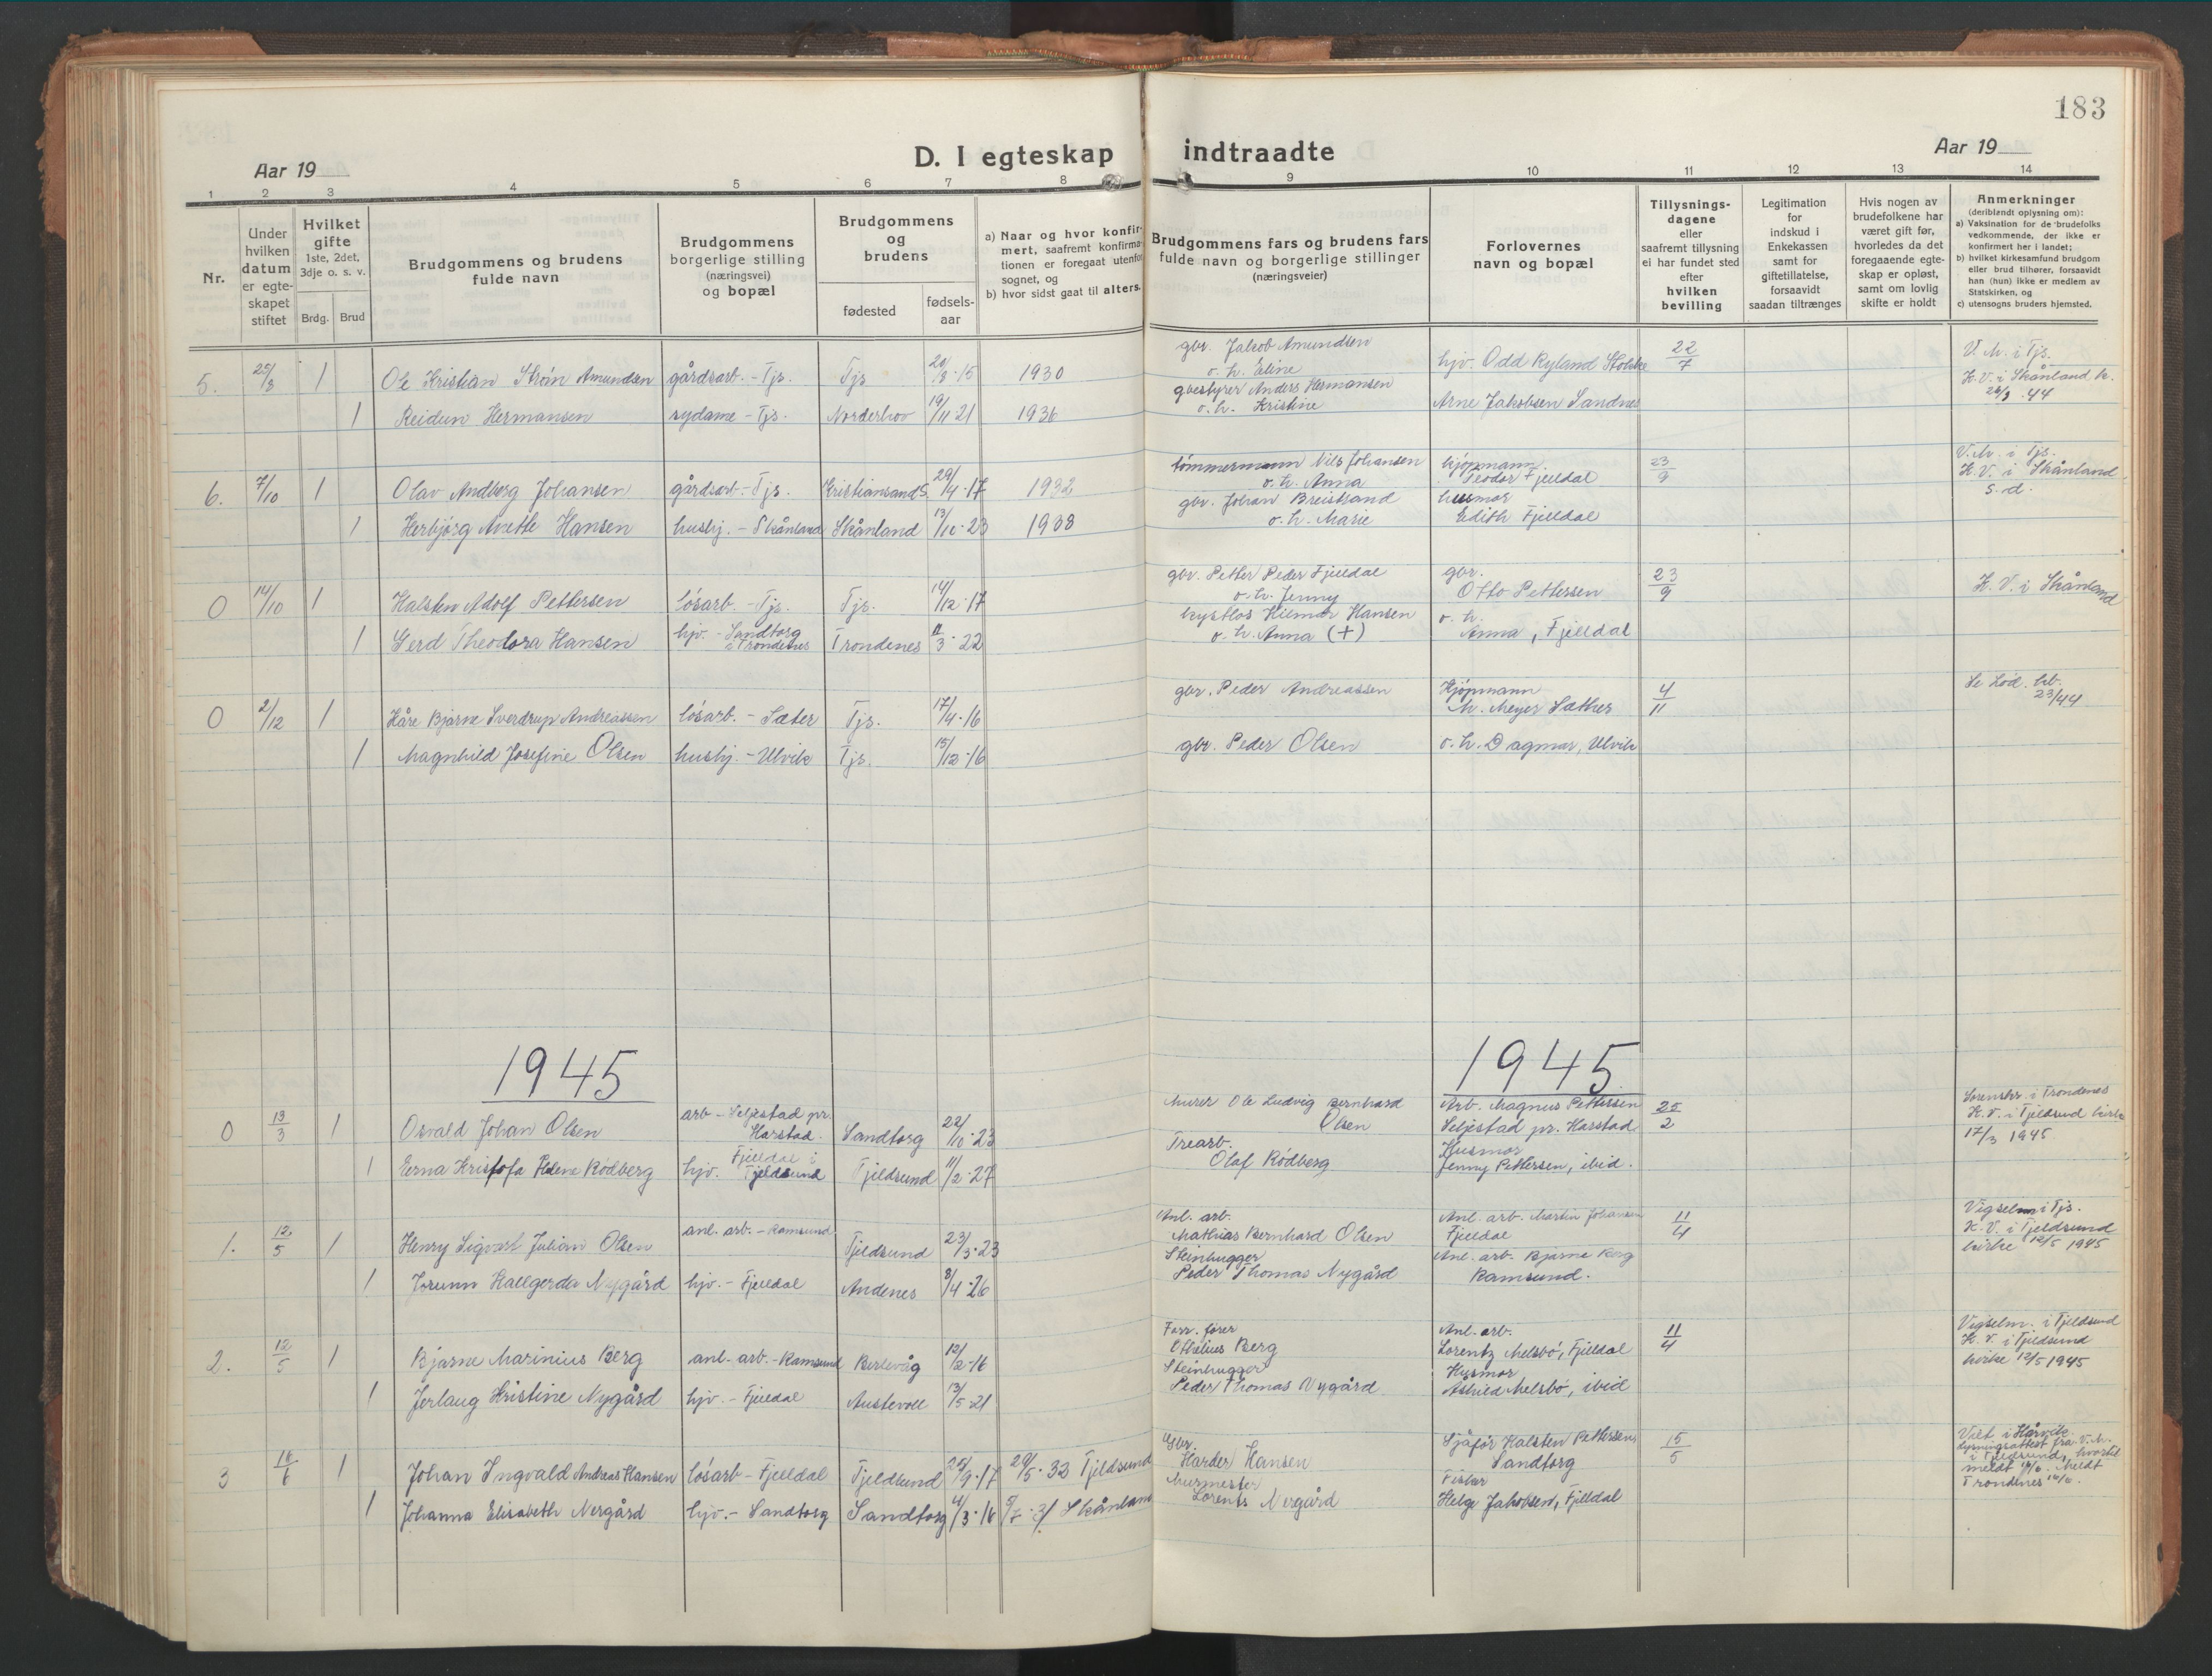 183
D. I egteskap indtraadte
Aar 19
Aar 19
1 2 3 4 5 6 7 8 9 10 11 12 13 14
Nr.
Under hvilken datum er egteskapet stiftet
Hvilket gifte 1ste, 2det, 3dje o. s. v.
Brdg. Brud
Brudgommens og brudens fulde navn
Brudgommens borgerlige stilling (næringsvei) og bopæl
Brudgommens og brudens
fødested
fødsels-aar
a) Naar og hvor konfirmert, saafremt konfirmationen er foregaat utenfor sognet, og
b) hvor sidst gaat til alters.
Brudgommens fars og brudens fars fulde navn og borgerlige stillinger (næringsveier)
Forlovernes navn og bopæl
Tillysningsdagene eller saafremt tillysning ei har fundet sted efter hvilken bevilling
Legitimation for indskud i Enkekassen samt for giftetillatelse, forsaavidt saadan tiltrænges
Hvis nogen av brudefolkene har været gift før, hvorledes da det foregaaende egteskap er opløst, samt om lovlig skifte er holdt
Anmerkninger (deriblandt oplysning om):
a) Vaksination for de brudefolks vedkommende, der ikke er konfirmert her i landet;
b) hvilket kirkesamfund brudgom eller brud tilhører, forsaavidt han (hun) ikke er medlem av Statskirken, og
c) utensogns bruders hjemsted.
5. 1 Ole Kristian Strøn Amundsen gårdsarb. - Tjs. Tjs 20/3-15 1930 gbr. Jakob Amundsen o. h. Eline hjv. Odd Ryland 22/7 V. M. i Tjs.
K. V. i Skånland k.
1 Reidun Hermansen sydame - Tjs. Norderhov 19/11 21 1936 gbestyrer Anders Hermansen o. h. Kristine Arne Jakobsen Sandnes
6. 7/10 1 Olav Andberg Johansen gårdsarb. - Tjs. Kristiansand S. 29/4-17 1932 tømmermann Nils Johansen o. h. Anna kjøpmann Teodor Fjelldal 23/9 V. M. i Tjs.
K. V. i Skånland s. d.
1 Herbjørg Anette Hansen hushj. - Skånland Skånland 23 1938 gbr. Johan Breistrand o. h. Marie husmor Edith Fjelldal
0 14/10 1 Halsten Adolf Pettersen løsarb. - Tjs. Tjs. 14/12-17 gbr. Petter Peder Fjelldal o. h. Jenny gbr. Otto Pettersen 23/9 K. V. i Skånland
1 Gerd Theodora Hansen hjv. - Sandtorg i Trondenes Trondenes 11/3-22 Hilmar Hansen o. h. Anna (+) o. h. Anna, Fjelldal
0 2/12 1 Kåre Bjarne Sverdrup Andreassen løsarb. - Sæter Tjs. 17/4-16 gbr. Peder Andreassen Kjøpmann M. Meyer Sæther 4/11 Se Lød. kb. 23/44
1 Magnhild Josefine Olsen hushj. - Ulvik Tjs. 15/12-16 gbr. Peder Olsen o. h. Dagmar, Ulvik
1945
1945
0 13/3 1 Osvald Johan Olsen arb - Seljestad pr. Harstad. Sandtorg 22/10-23 Murer Ole Ludvig Bernhard Olsen Arb. Magnus Pettersen Seljestad pr. Harstad 25/2 Sorenskr. i Trondenes
K. V. i Tjeldsund kirke
17/3 1945
1 Erna Kristofa Helene Rødberg hjv. Fjelldal i Tjeldsund Tjeldsund 11/2-27 Trearb. Olaf Rødberg Husmor Jenny Pettersen, ibid.
1. 12/5 1 Henry Sigvart Julian Olsen anl. arb. - Ramsund Tjeldsund 23/3-23 Anl. arb. Mathias Bernhard Olsen Anl. arb. Martin Johansen Fjelldal 11/4 Vigselm i Tjs.
K. V. i Tjeldsund
kirke 12/5 1945
1 Jorunn Hallgerda Nygård hjv. - Fjelldal Andenes 8/4-26 Steinhugger Peder Thomas Nygård Anl. arb. Bjarne Berg Ramsund.
2. 12/5 1 Bjarne Marinius Berg anl. arb. - Ramsund Berlevåg 12/2-16 Forr. fører Othelius Berg Anl. arb. Lorentz Melsbø, Fjelldal 11/4 Vigselm. i Tjeldsund
K. V. i Tjeldsund
kirke 12/5 1945
1 Jerlaug Kristine Nygård hjv. - Fjelldal Austevoll 13/5-21 Steinhugger Peder Thomas Nygård Husmor Åshild Melsbø, ibid
3 16/6 1 Johan Ingvald Andreas Hansen løsarb - Fjelldal Tjeldsund 25/9-17 29/5-32 Tjeldsund Gbr. Harder Hansen Sjåfør Halsten Pettersen Sandtorg 15/5 Viet i
Lysningsattest fra V. M.
i Tjeldsund, hvortil
meldt Meldt
Trondenes
1 Johanna Elisabeth Nergård hjv. - Sandtorg Sandtorg 4/3-16 5/7-31 Skånland Murmester Lorents Nergård Fisker Helge Jakobsen, Fjelldal